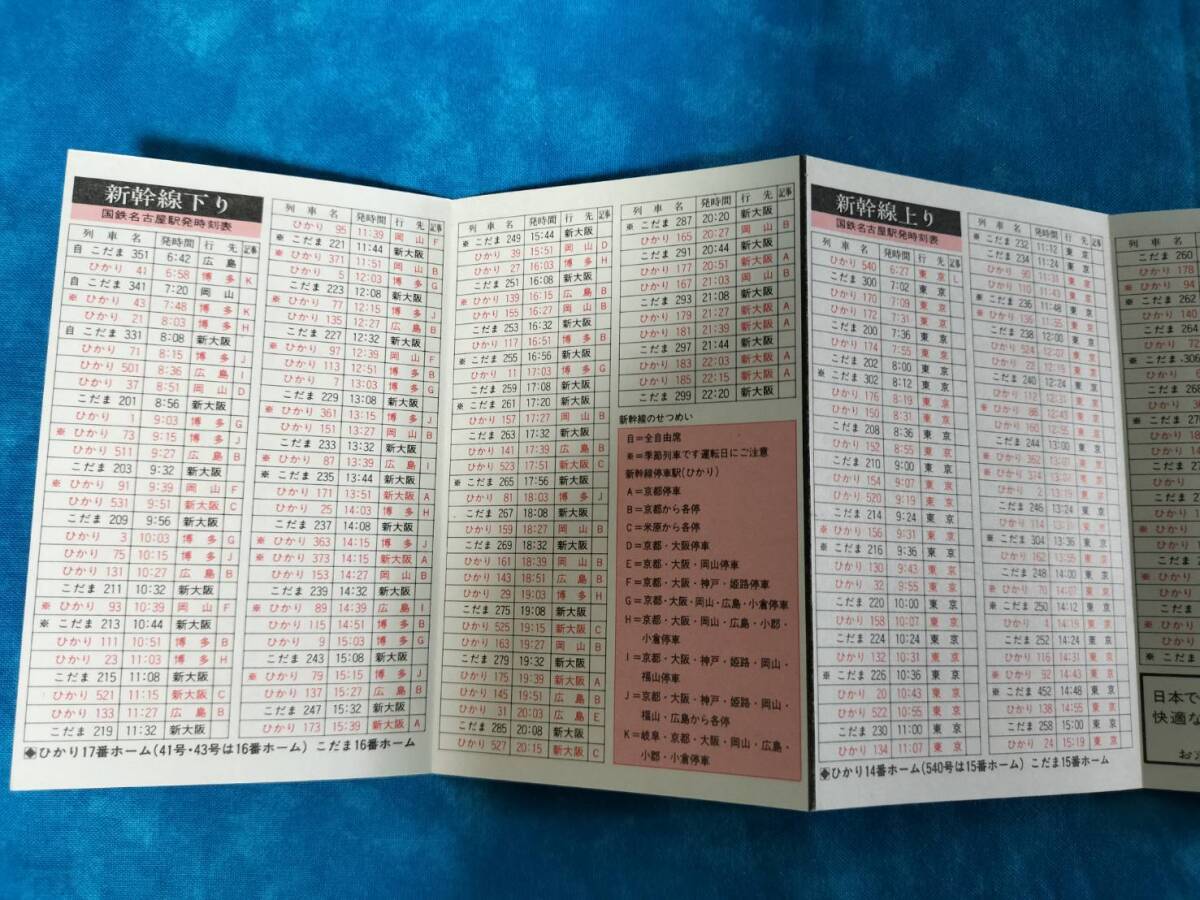 新幹線下り
国鉄名古屋駅発時刻表
列車名 発時間 行先 記事
自 こだま 351 6:42 広島
ひかり 41 6:58 博多 K
自 こだま 341 7:20 岡山
※ ひかり 43 7:48 博多 K
ひかり 21 8:03 博多 H
自 こだま 331 8:08 新大阪
ひかり 71 8:15 博多 J
ひかり 501 8:36 広島 I
ひかり 37 8:51 岡山 D
こだま 201 8:56 新大阪
ひかり 1 9:03 博多 G
※ ひかり 73 9:15 博多 J
ひかり 511 9:27 広島 B
こだま 203 9:32 新大阪
※ ひかり 91 9:39 岡山 F
ひかり 531 9:51 新大阪 C
こだま 209 9:56 新大阪
ひかり 3 10:03 博多 G
ひかり 75 10:15 博多 J
ひかり 131 10:27 広島 B
こだま 211 10:32 新大阪
※ ひかり 93 10:39 岡山 F
※ こだま 213 10:44 新大阪
ひかり 111 10:51 博多 B
ひかり 23 11:03 博多 H
こだま 215 11:08 新大阪
ひかり 521 11:15 新大阪 C
ひかり 133 11:27 広島 B
こだま 219 11:32 新大阪
◆ひかり17番ホーム(41号・43号は16番ホーム) こだま16番ホーム
列車名 発時間 行先 記事
ひかり 95 11:39 岡山 F
※ こだま 221 11:44 新大阪
※ ひかり 371 11:51 岡山 B
ひかり 5 12:03 博多 G
こだま 223 12:08 新大阪
※ ひかり 77 12:15 博多 J
ひかり 135 12:27 広島 B
こだま 227 12:32 新大阪
※ ひかり 97 12:39 岡山 F
ひかり 113 12:51 博多 B
ひかり 7 13:03 博多 G
こだま 229 13:08 新大阪
※ ひかり 361 13:15 博多 J
ひかり 151 13:27 岡山 B
こだま 233 13:32 新大阪
※ ひかり 87 13:39 広島 I
※ こだま 235 13:44 新大阪
ひかり 171 13:51 新大阪 A
ひかり 25 14:03 博多 H
こだま 237 14:08 新大阪
※ ひかり 363 14:15 博多 J
※ ひかり 373 14:15 新大阪 A
ひかり 153 14:27 岡山 B
こだま 239 14:32 新大阪
※ ひかり 89 14:39 広島 I
ひかり 115 14:51 博多 B
ひかり 9 15:03 博多 G
こだま 243 15:08 新大阪
※ ひかり 79 15:15 博多 J
ひかり 137 15:27 広島 B
こだま 247 15:32 新大阪
ひかり 173 15:39 新大阪 A
列車名 発時間 行先 記事
※ こだま 249 15:44 新大阪
ひかり 39 15:51 岡山 D
ひかり 27 16:03 博多 H
こだま 251 16:08 新大阪
※ ひかり 139 16:15 広島 B
ひかり 155 16:27 岡山 B
こだま 253 16:32 新大阪
ひかり 117 16:51 博多 B
※ こだま 255 16:56 新大阪
ひかり 11 17:03 博多 G
こだま 259 17:08 新大阪
※ こだま 261 17:20 新大阪
ひかり 157 17:27 岡山 B
こだま 263 17:32 新大阪
ひかり 141 17:39 広島 B
ひかり 523 17:51 新大阪 C
※ こだま 265 17:56 新大阪
ひかり 81 18:03 博多 J
こだま 267 18:08 新大阪
ひかり 159 18:27 岡山 B
こだま 269 18:32 新大阪
ひかり 161 18:39 岡山 B
ひかり 143 18:51 広島 B
ひかり 29 19:03 博多 H
こだま 275 19:08 新大阪
ひかり 525 19:15 新大阪 C
ひかり 163 19:27 岡山 B
こだま 279 19:32 新大阪
ひかり 175 19:39 新大阪 A
ひかり 145 19:51 広島 B
ひかり 31 20:03 広島 E
こだま 285 20:08 新大阪
ひかり 527 20:15 新大阪 C
列車名 発時間 行先 記事
※ こだま 287 20:20 新大阪
ひかり 165 20:27 岡山 B
こだま 291 20:44 新大阪
ひかり 177 20:51 新大阪 A
ひかり 167 21:03 岡山 B
こだま 293 21:08 新大阪
ひかり 179 21:27 新大阪 A
ひかり 181 21:39 新大阪 A
こだま 297 21:44 新大阪
ひかり 183 22:03 新大阪 A
ひかり 185 22:15 新大阪 A
こだま 299 22:20 新大阪
新幹線のせつめい
自=全自由席
※=季節列車です運転日にご注意
新幹線停車駅(ひかり)
A=京都停車
B=京都から各停
C=米原から各停
D=京都・大阪停車
E=京都・大阪・岡山停車
F=京都・大阪・神戸・姫路停車
G=京都・大阪・岡山・広島・小倉停車
H=京都・大阪・岡山・広島・小郡・
小倉停車
I=京都・大阪・神戸・姫路・岡山・
福山停車
J=京都・大阪・神戸・姫路・岡山・
福山・広島から各停
K=岐阜・京都・大阪・岡山・広島・
小郡・小倉停車
新幹線上り
国鉄名古屋駅発時刻表
列車名 発時間 行先 記事
ひかり 540 6:27 東京 L
こだま 300 7:02 東京
ひかり 170 7:09 東京
ひかり 172 7:31 東京
こだま 200 7:36 東京
ひかり 174 7:55 東京
こだま 202 8:00 東京
※ こだま 302 8:12 東京
ひかり 176 8:19 東京
ひかり 150 8:31 東京
こだま 208 8:36 東京
ひかり 152 8:55 東京
こだま 210 9:00 東京
ひかり 154 9:07 東京
ひかり 520 9:19 東京
こだま 214 9:24 東京
※ ひかり 156 9:31 東京
※ こだま 216 9:36 東京
ひかり 130 9:43 東京
ひかり 32 9:55 東京
こだま 220 10:00 東京
ひかり 158 10:07 東京
こだま 224 10:24 東京
ひかり 132 10:31 東京
※ こだま 226 10:36 東京
ひかり 20 10:43 東京
ひかり 522 10:55 東京
こだま 230 11:00 東京
ひかり 134 11:07 東京
◆ひかり14番ホーム(540号は15番ホーム) こだま15番ホーム
列車名 発時間 行先 記事
※ こだま 232 11:12 東京
こだま 234 11:24 東京
ひかり 90 11:31 東京
ひかり 110 11:43 東京
※ こだま 236 11:48 東京
※ ひかり 136 11:55 東京
こだま 238 12:00 東京
ひかり 524 12:07 東京
ひかり 22 12:19 東京
こだま 240 12:24 東京
ひかり 112 12:31 東京
※ ひかり 86 12:43 東京
ひかり 160 12:55 東京
こだま 244 13:00 東京
※ ひかり 362 13:07 東京
※ ひかり 374 13:07 東京
ひかり 2 13:19 東京
こだま 246 13:24 東京
ひかり 114 13:31 東京
※ こだま 304 13:36 東京
ひかり 162 13:55 東京
こだま 248 14:00 東京
※ ひかり 70 14:07 東京
※ こだま 250 14:12 東京
ひかり 4 14:19 東京
こだま 252 14:24 東京
ひかり 116 14:31 東京
※ ひかり 92 14:43 東京
※ こだま 452 14:48 東京
ひかり 138 14:55 東京
こだま 258 15:00 東京
ひかり 24 15:19 東京
列車名
こだま 260
ひかり 178
※ ひかり 94
※ こだま 262
日本で
快適な